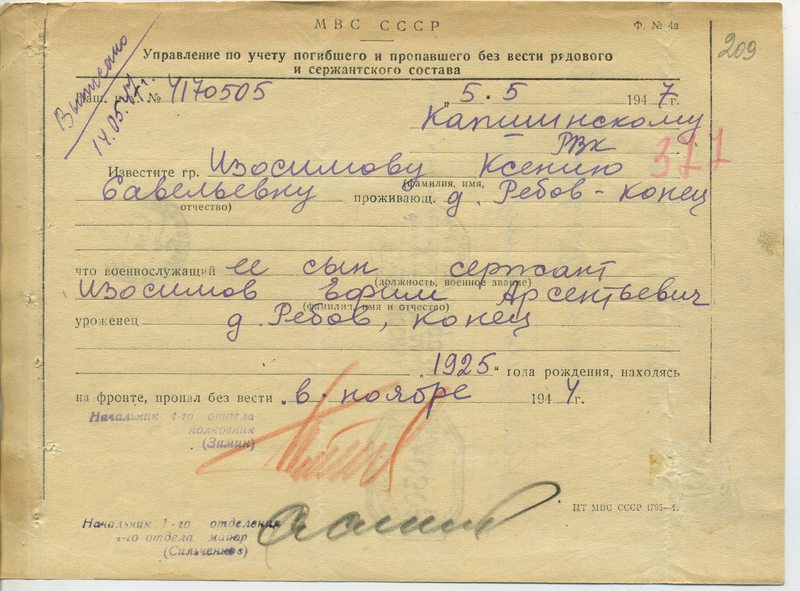 МВС СССР
Ф. № 4а
209
Управление по учету погибшего и пропавшего без вести рядового
и сержантского состава
Выписано
14.05.47г.
Ваш. №
4170505
„5.5 1947г.
Капшинскому
РВК
377
Известите гр. Изосимову Ксению
(фамилия, имя,
Савельевну проживающ. д. Ребов-конец
отчество)
что военнослужащий ее сын сержант
(должность, военное звание)
Изосимов Ефим Арсентьевич
(фамилия, имя и отчество)
уроженец д. Ребов, конец
„1925“ года рождения, находясь
на фронте, пропал без вести „в ноябре 1944г.
Начальник 4-го отдела
полковник
(Зимин)
ЦТ МВС СССР
Начальник 1-го отделения
4-го отдела майор
(Сильченков)